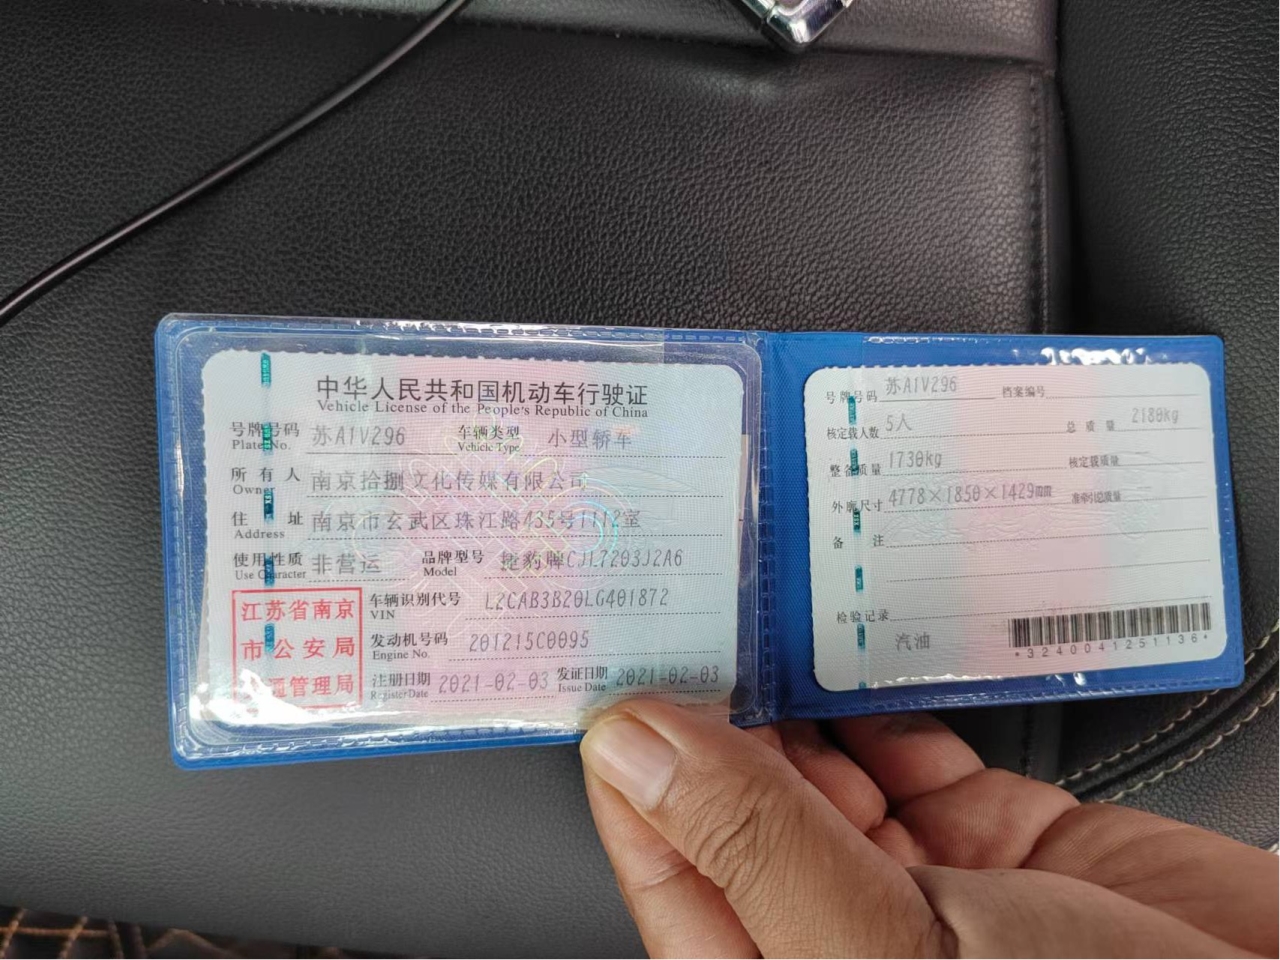 中华人民共和国机动车行驶证
Vehicle License of the People's Republic of China
号牌号码 苏A1V296 车辆类型 小型轿车
Plate No. Vehicle Type
所有人 南京拾捌文化传媒有限公司
Owner
住址 南京市玄武区珠江路435号1112室
Address
使用性质 非营运 品牌型号 捷豹牌CJL7203J2A6
Use Character Model
车辆识别代号 L2CAB3B20LG401872
VIN
发动机号码 201215C0095
Engine No.
注册日期 2021-02-03 发证日期 2021-02-03
Register Date Issue Date
江苏省南京
市公安局
通管理局
号牌号码 苏A1V296 档案编号
核定载人数 5人 总质量 2180kg
整备质量 1730kg 核定载质量
外廓尺寸 4778×1850×1429mm 准牵引总质量
备注
检验记录
汽油
*3240041251136*